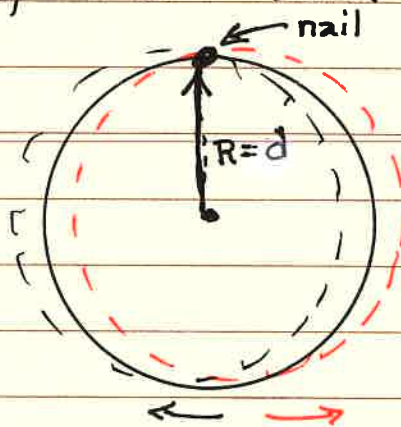 nail
R=d